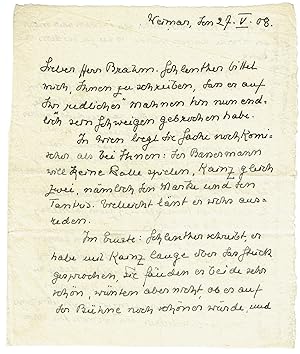 Weimar, den 27. V. 08.
Lieber Herr Brahm. Schlenther bittet
mich, Ihnen zu schreiben, dass er auf
Ihr redliches mahnen hin nun end-
lich sein Schweigen gebrochen habe.
In Wien liegt die Sache noch komi-
scher als bei Ihnen: der Bassermann
will keine Rolle spielen, Kainz gleich
zwei, nämlich den Marke und den
Tantris. Vielleicht lässt er wohl aus-
reden.
Im Ernste: Schlenther schreibt, er
habe mit Kainz lange über das Stück
gesprochen, sie fänden es beide sehr
schön, wüssten aber nicht, ob es auf
der Bühne noch schöner würde, und